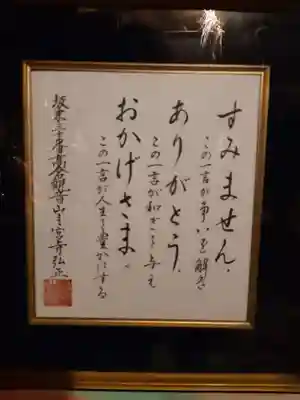 すみません、
この一言が争いを解き
ありがとう、
この一言が和ぎを与え
おかげさま。
この一言が人生を豊かにする
坂東三十番高倉観音山主宮寺弘正